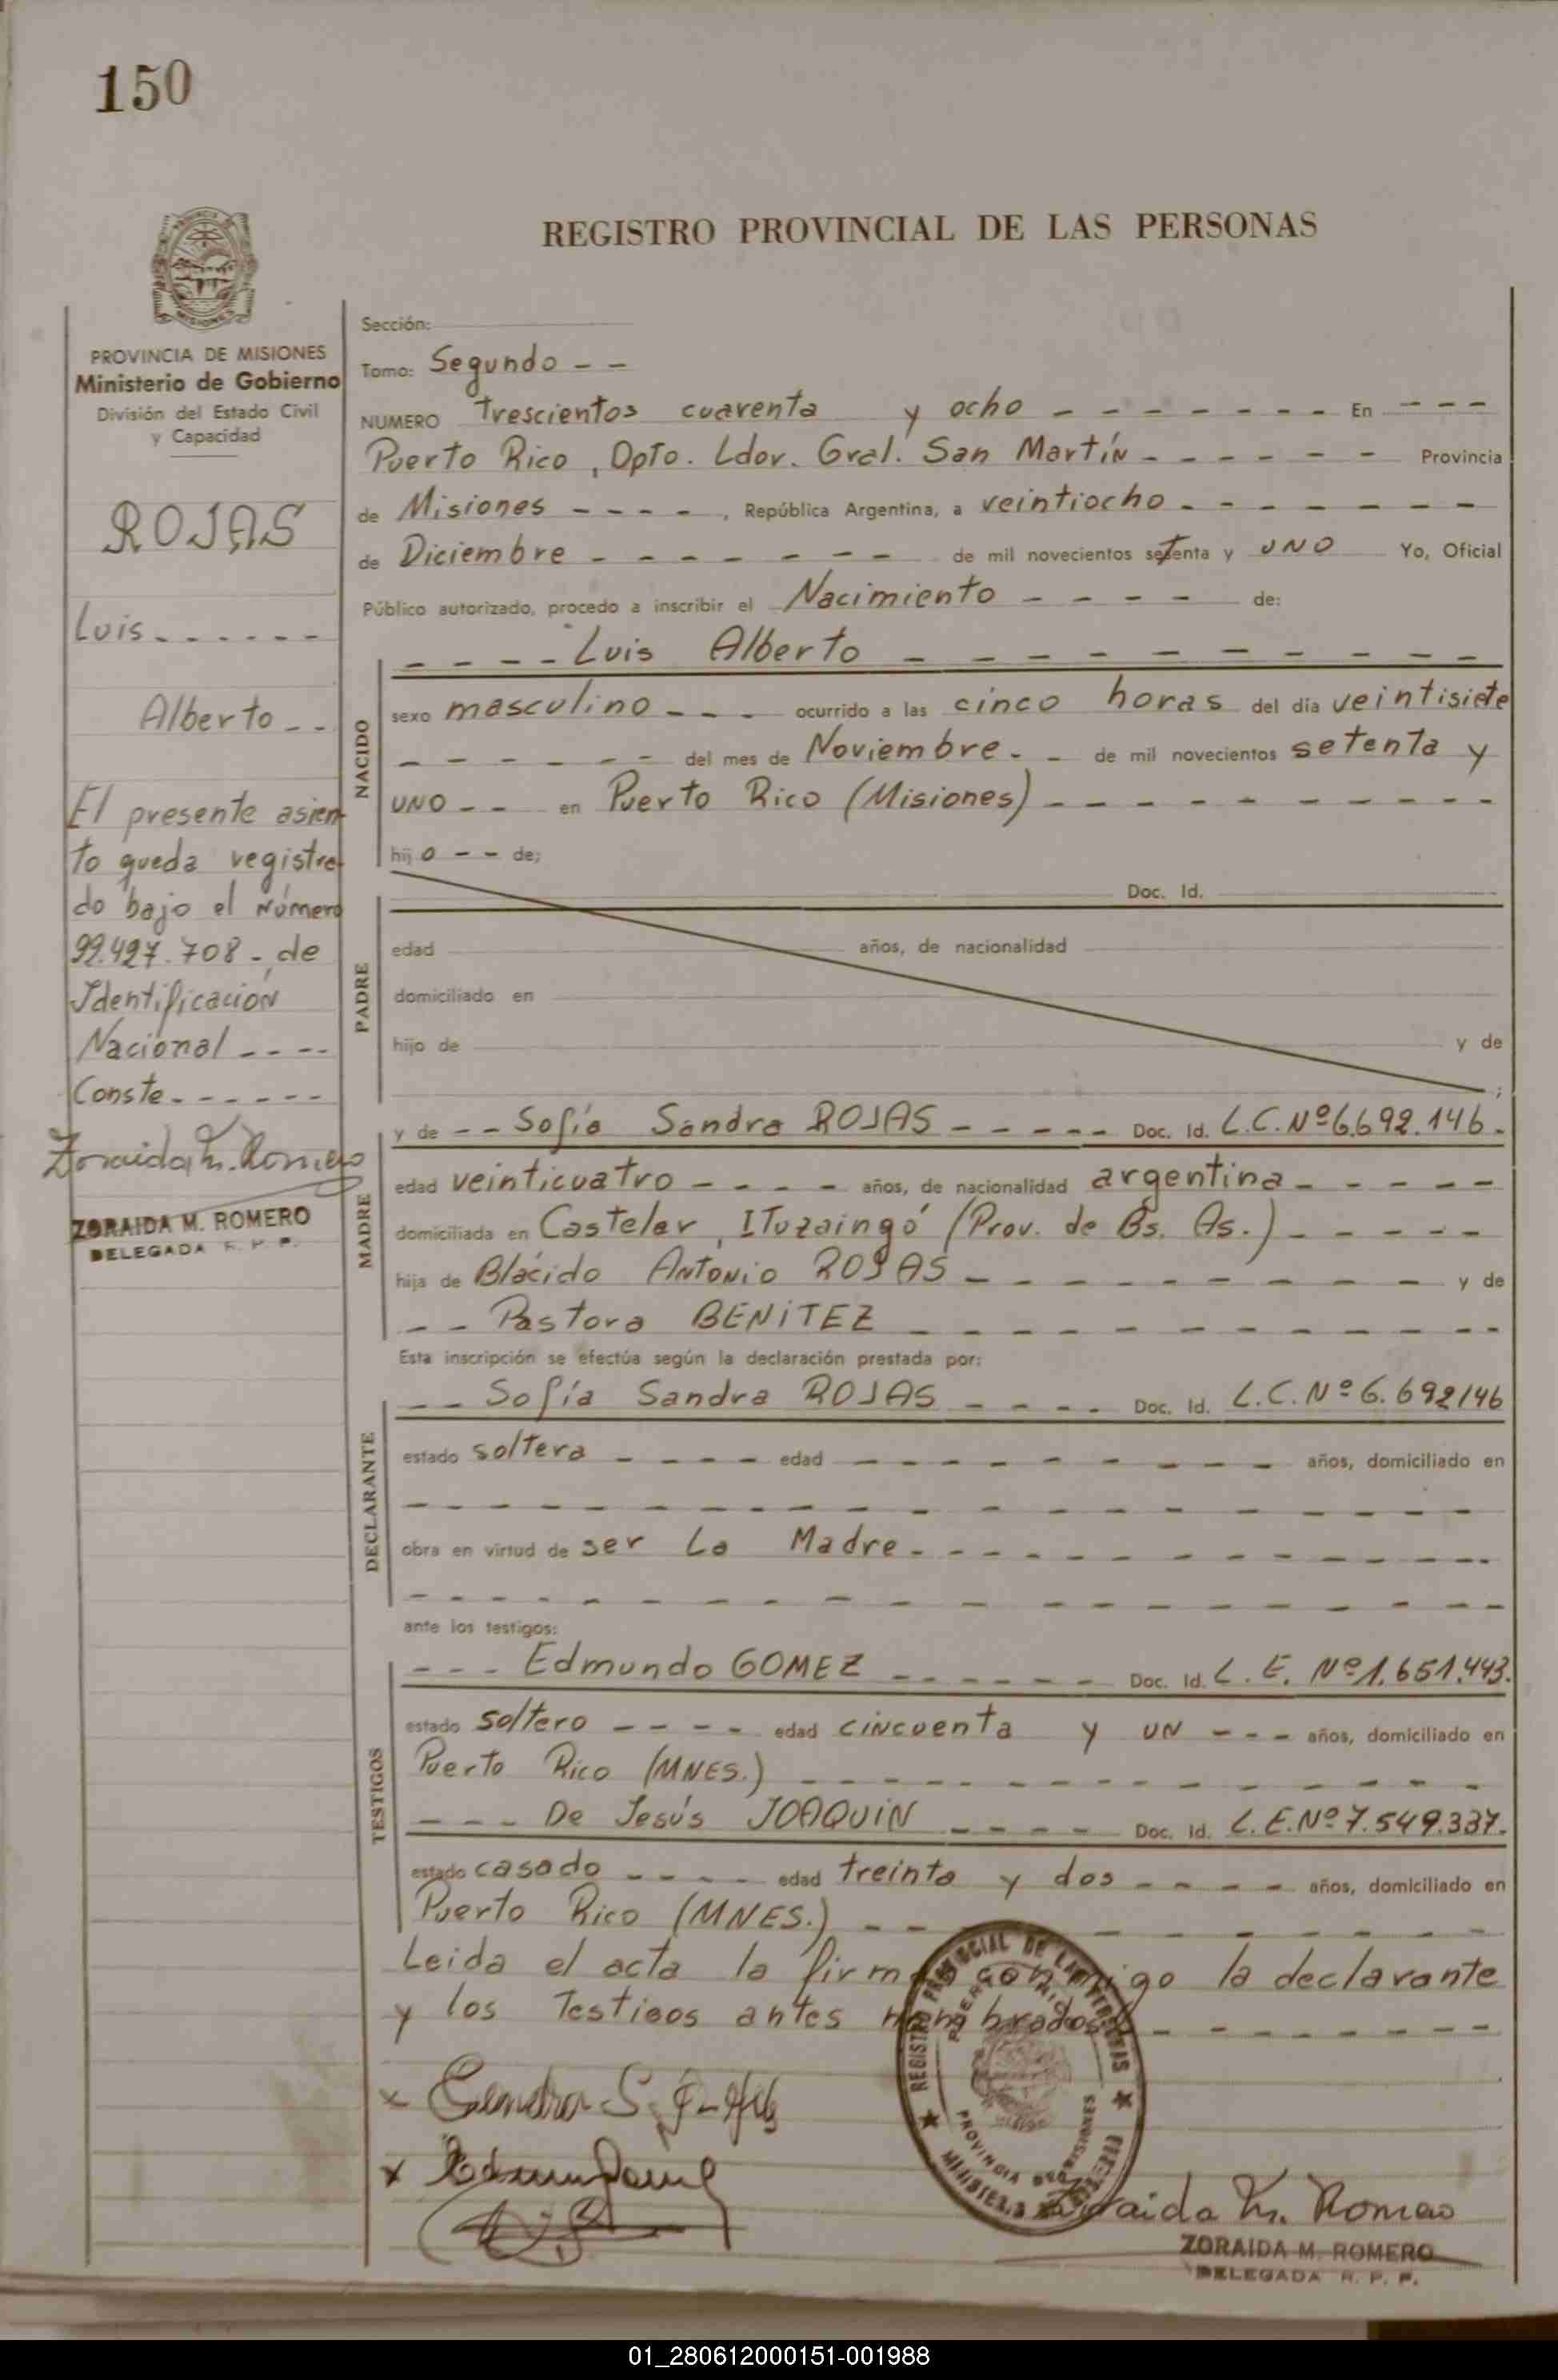 150
REGISTRO PROVINCIAL DE LAS PERSONAS
MISIONES
PROVINCIA DE MISIONES
Ministerio de Gobierno
División del Estado Civil
y Capacidad
ROJAS
Luis
Alberto
El presente asien
to queda registra
do bajo el Número
99.427.708 -, de
Identificación
Nacional
Conste
Zoraida M. Romero
ZORAIDA M. ROMERO
DELEGADA R. P. P.
Sección:
Tomo: Segundo
NUMERO trescientos cuarenta y ocho En
Puerto Rico, Dpto. Ldor. Gral. San Martín Provincia
de Misiones, República Argentina, a veintiocho
de Diciembre de mil novecientos setenta y UNO Yo, Oficial
Público autorizado, procedo a inscribir el Nacimiento de:
NACIDO
Luis Alberto
sexo masculino ocurrido a las cinco horas del día veintisiete
del mes de Noviembre de mil novecientos setenta y
UNO en Puerto Rico (Misiones)
hijo de;
PADRE
Doc. Id.
edad años, de nacionalidad
domiciliado en
hijo de y de
;
MADRE
y de Sofía Sandra ROJAS Doc. Id. L.C. Nº 6.692.146.
edad veinticuatro años, de nacionalidad argentina
domiciliada en Castelar, ITuzaingó (Prov. de Bs. As.)
hija de Blácido Antonio ROJAS y de
Pastora BENITEZ
Esta inscripción se efectúa según la declaración prestada por:
DECLARANTE
Sofía Sandra ROJAS Doc. Id. L.C. Nº 6.692146
estado soltera edad años, domiciliado en
obra en virtud de ser La Madre
ante los testigos:
TESTIGOS
Edmundo GOMEZ Doc. Id. L. E. Nº 1.651.443.
estado soltero edad cincuenta y UN años, domiciliado en
Puerto Rico (MNES.)
De Jesús JOAQUIN Doc. Id. L.E. Nº 7.549.337.
estado casado edad treinta y dos años, domiciliado en
Puerto Rico (MNES.)
Leida el acta la firman conmigo la declarante
y los Testigos antes nombrados
REGISTRO PROVINCIAL DE LAS PERSONAS
PUERTO RICO
PROVINCIA DE MISIONES
Zoraida M. Romero
ZORAIDA M. ROMERO
DELEGADA R. P. P.
01_280612000151-001988